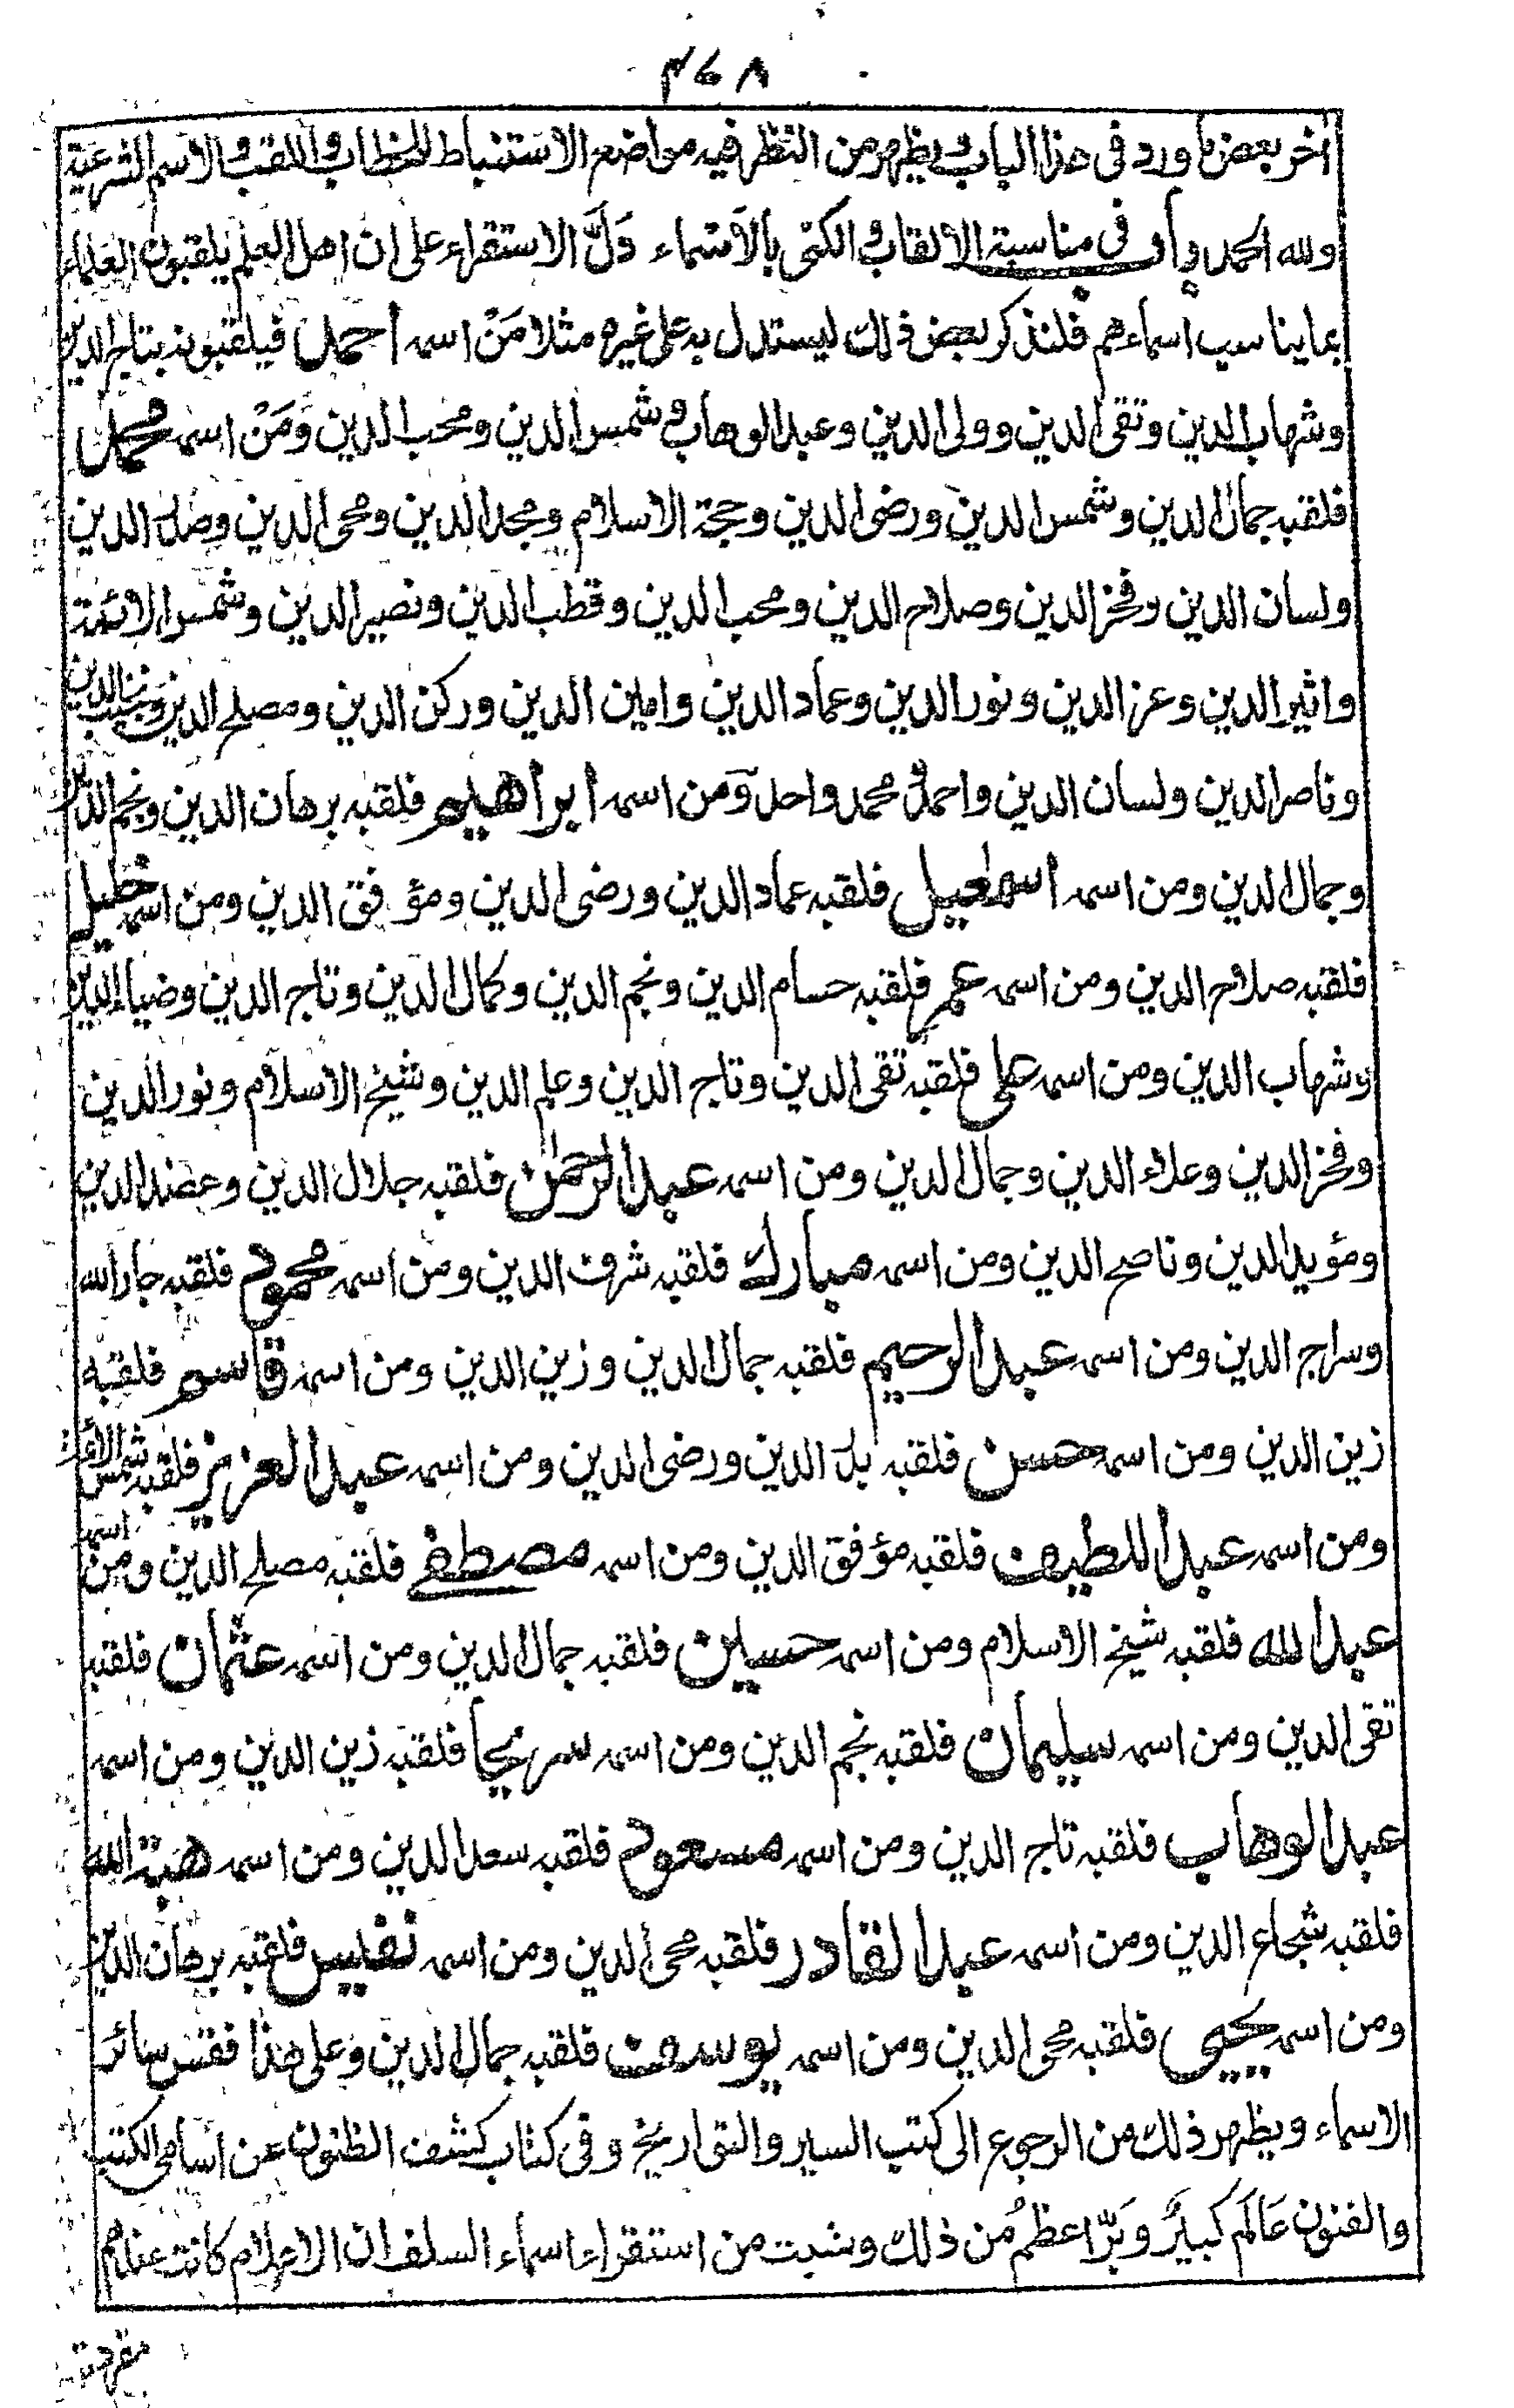 ٤٦٨
آخر بعض ما ورد فى هذا الباب ويظهر من النظر فيه مواضع الاستنباط للخطاب واللقب والاسم الشرعية
ولله الحمد وأما فى مناسبة الالقاب والكنى بالأسماء دَلَّ الاستقراء على ان اهل العلم يلقبون العلماء
بما يناسب اسماءهم فلنذكر بعض ذلك ليستدل به على غيره مثلا مَنْ اسمه أحمد فيلقبونه بتاج الدين
وشهاب الدين وتقى الدين وولى الدين وعبد الوهاب وشمس الدين ومحب الدين وَمَنْ اسمه محمد
فلقبه جمال الدين وشمس الدين ورضى الدين وحجة الاسلام ومجد الدين ومحى الدين وصدر الدين
ولسان الدين وفخر الدين وصلاح الدين ومحب الدين وقطب الدين ونصير الدين وشمس الائمة
واثير الدين وعز الدين ونور الدين وعماد الدين وامين الدين وركن الدين ومصلح الدين ونجيب الدين
وناصر الدين ولسان الدين واحمد ومحمد واحد ومن اسمه ابراهيم فلقبه برهان الدين ونجم الدين
وجمال الدين ومن اسمه اسمعيل فلقبه عماد الدين ورضى الدين ومؤفق الدين ومن اسمه خليل
فلقبه صلاح الدين ومن اسمه عمر فلقبه حسام الدين ونجم الدين وكمال الدين وتاج الدين وضياء الدين
وشهاب الدين ومن اسمه على فلقبه تقى الدين وتاج الدين وعلم الدين وشيخ الاسلام ونور الدين
وفخر الدين وعلاء الدين وجمال الدين ومن اسمه عبد الرحمن فلقبه جلال الدين وعضد الدين
ومؤيد الدين وناصح الدين ومن اسمه مبارك فلقبه شرف الدين ومن اسمه محمود فلقبه جار الله
وسراج الدين ومن اسمه عبد الرحيم فلقبه جمال الدين وزين الدين ومن اسمه قاسم فلقبه
زين الدين ومن اسمه حسن فلقبه بدر الدين ورضى الدين ومن اسمه عبد العزيز فلقبه شمس الائمة
ومن اسمه عبد اللطيف فلقبه مؤفق الدين ومن اسمه مصطفى فلقبه مصلح الدين ومن اسمه
عبد الله فلقبه شيخ الاسلام ومن اسمه حسين فلقبه جمال الدين ومن اسمه عثمان فلقبه
تقى الدين ومن اسمه سليمان فلقبه نجم الدين ومن اسمه سريجا فلقبه زين الدين ومن اسمه
عبد الوهاب فلقبه تاج الدين ومن اسمه مسعود فلقبه سعد الدين ومن اسمه هبة الله
فلقبه شجاع الدين ومن اسمه عبد القادر فلقبه محى الدين ومن اسمه نفيس فلقبه برهان الدين
ومن اسمه يحيى فلقبه محى الدين ومن اسمه يوسف فلقبه جمال الدين وعلى هذا فقس سائر
الاسماء ويظهر ذلك من الرجوع الى كتب السير والتواريخ وفى كتاب كشف الظنون عن اسامى الكتب
والفنون عَالَم كبيرٌ وَبَرّ اعظمُ من ذلك وثبت من استقراء اسماء السلف ان الاعلام كانت عندهم
مفردة